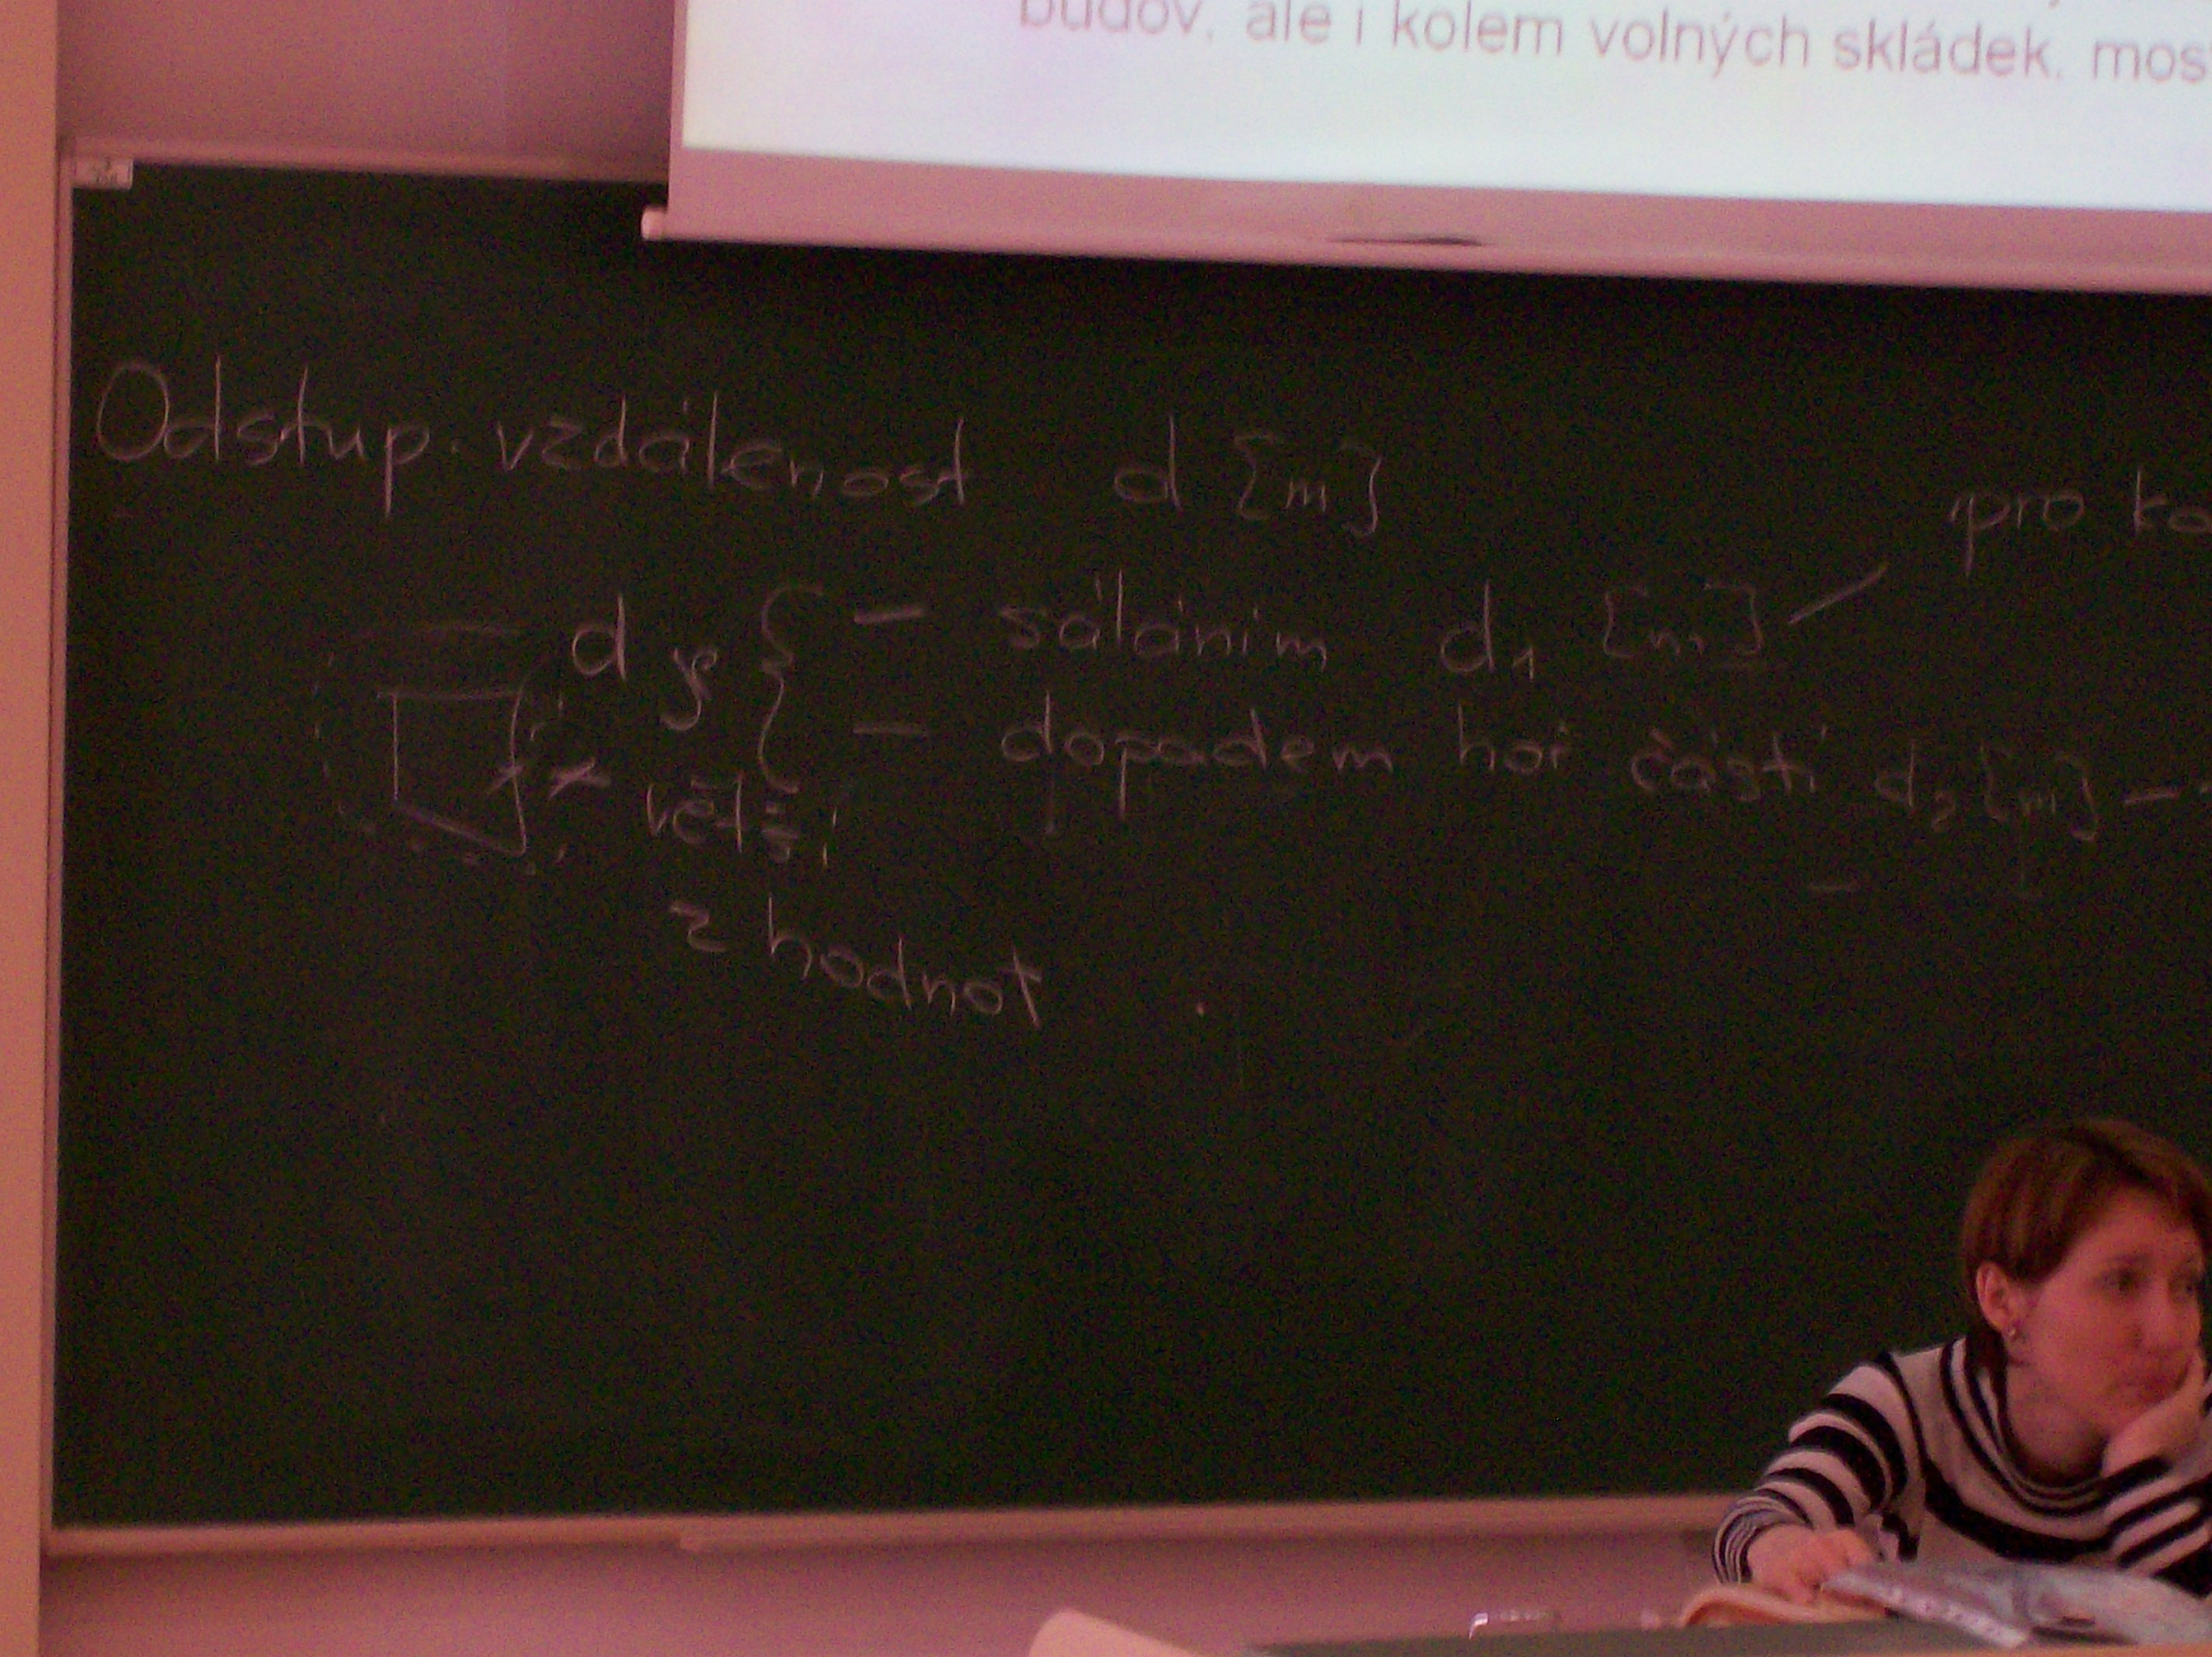 budov, ale i kolem volných skládek, mos
Odstup. vzdálenost d [m]
pro ko
d je { – sáláním d₁ [m]
– dopadem hoř částí d₂ [m] –
větší
z hodnot